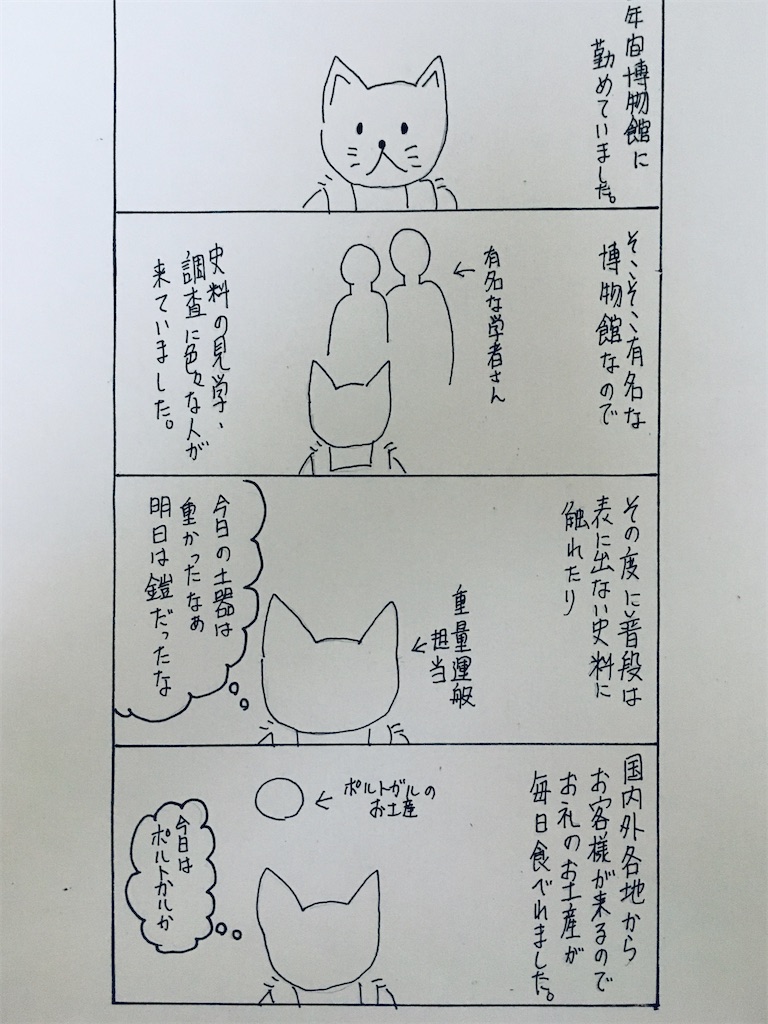 年間博物館に
勤めていました。
そこそこ有名な
博物館なので
有名な学者さん
史料の見学、
調査に色々な人が
来ていました。
その度に普段は
表に出ない史料に
触れたり
重量運般
担当
今日の土器は
重かったなぁ
明日は鎧だったな
国内外各地から
お客様が来るので
お礼のお土産が
毎日食べれました。
ポルトガルの
お土産
今日は
ポルトガルか